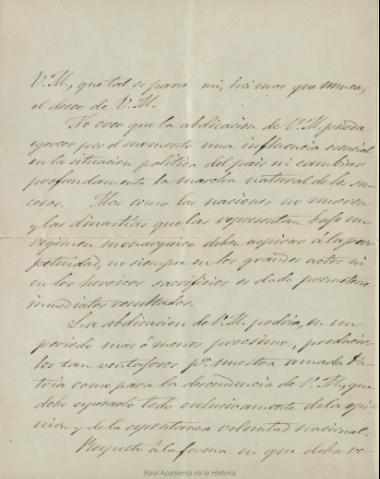 V.M., que tal es para mi, hoi mas que nunca,
el deseo de V.M.
No creo que la abdicacion de V.M. pueda
ejercer por el momento una influencia esencial
en la situacion politica del pais ni cambiar
profundamente la marcha natural de los su-
cesos. Mas como las naciones no mueren
y las dinastias que las representan bajo un
regimen monarquico deben aspirar á la per-
petuidad, no siempre en los grandes actos ni
en los heroicos sacrificios es dado prometerse
inmediatos resultados.
La abdicacion de V.M. podria, en un
periodo mas ó menos procsimo, producir
los tan ventajosos pa. nuestra amada Pa-
tria como para la descendencia de V.M., que
debe esperarlo todo esclusivamente de la opi-
nion y de la espontanea voluntad nacional.
Respecto á la forma en que deba ve-
Real Academia de la Historia